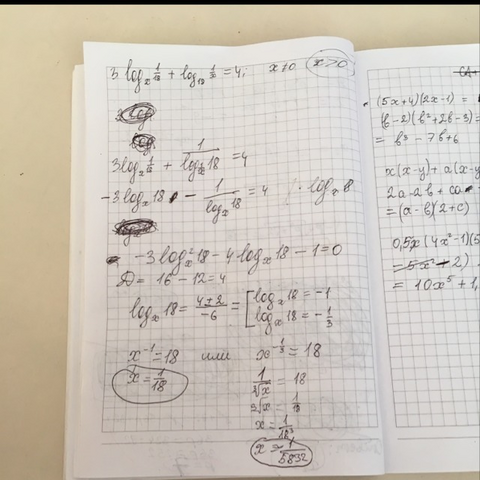 3 log_x 1/18 + log_18 1/x = 4, x≠0 x>0
3log_x 1/18 + 1/log_x 18 = 4
-3log_x 18 - 1/log_x 18 = 4 | · log_x
-3log²_x 18 - 4 log_x 18 - 1 = 0
D = 16 - 12 = 4
log_x 18 = (4±2)/-6 = [ log_x 18 = -1
log_x 18 = -1/3
x^-1 = 18 или x^-1/3 = 18
x = 1/18
1/∛x = 18
∛x = 1/18
x = 1/18³
x = 1/5832
(5x+4)(2x-1) =
(b-2)(b²+2b-3) =
= b³ - 7b+6
x(x-y) + a(x-y
2a - 2b + ca
= (a-b)(2+c)
0,5x(4x²-1)(5
= 10x⁵ + 1,